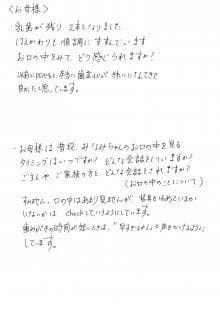 〈お母様〉
・乳歯が残り、2本となりました
はえかわりも順調にすすんでいます
お口の中をみて、どう感じられますか？
以前に比べると、本当に歯並びが きれいになってきて
驚いたと思っています。
・お母様は普段、みなみちゃんのお口の中を見る
タイミングはいつですか？ どんな会話をしていますか？
ご主人や、ご家族の方と、どんな会話をされますか？
（お口の中のことについて）
すみません、口の中はあまり見ませんが、装具をはめているか
いけないかは checkしていけようにしています。
歯みがきの時間が短いときは、「早すぎるやん」と声をかけるように
しています。